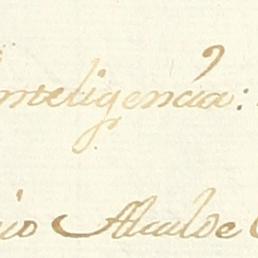 inteligencia:
cio Alcalde